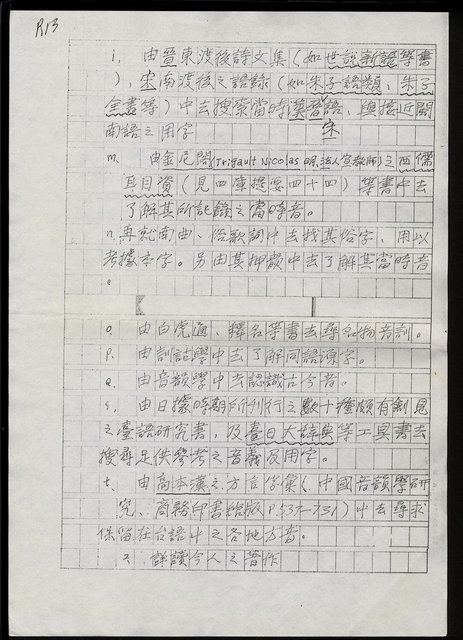 P.13
i. 由晉東渡後詩文集(如世說新語等書
),宋南渡後之語錄(如朱子語類,朱子
全書等)中去搜索當時漢晉語,與接近閩
宋
南語之用字
m. 由金尼閣(Trigault Nicolas明,法人宣教師)之西儒
耳目資(見四庫提要四十四)等書中去
了解其所記錄之當時音。
n. 再就南曲、俗歌詞中去找其俗字,用以
考據本字。另由其押韻中去了解其當時音
。
o. 由白虎通、釋名等書去尋名物音訓。
p. 由訓詁學中去了解同語源字。
q. 由音韻學中去認識古今音。
s. 由日據時期所刊行之數十種頗有創見
之臺語研究書,及臺日大辭典等工具書去
搜尋足供參考之音義及用字。
t. 由高本漢之方言字彙(中國音韻學研
究、商務印書館版P.537—731)中去尋求
保留在台語中之各地方音。
詳讀今人之著作